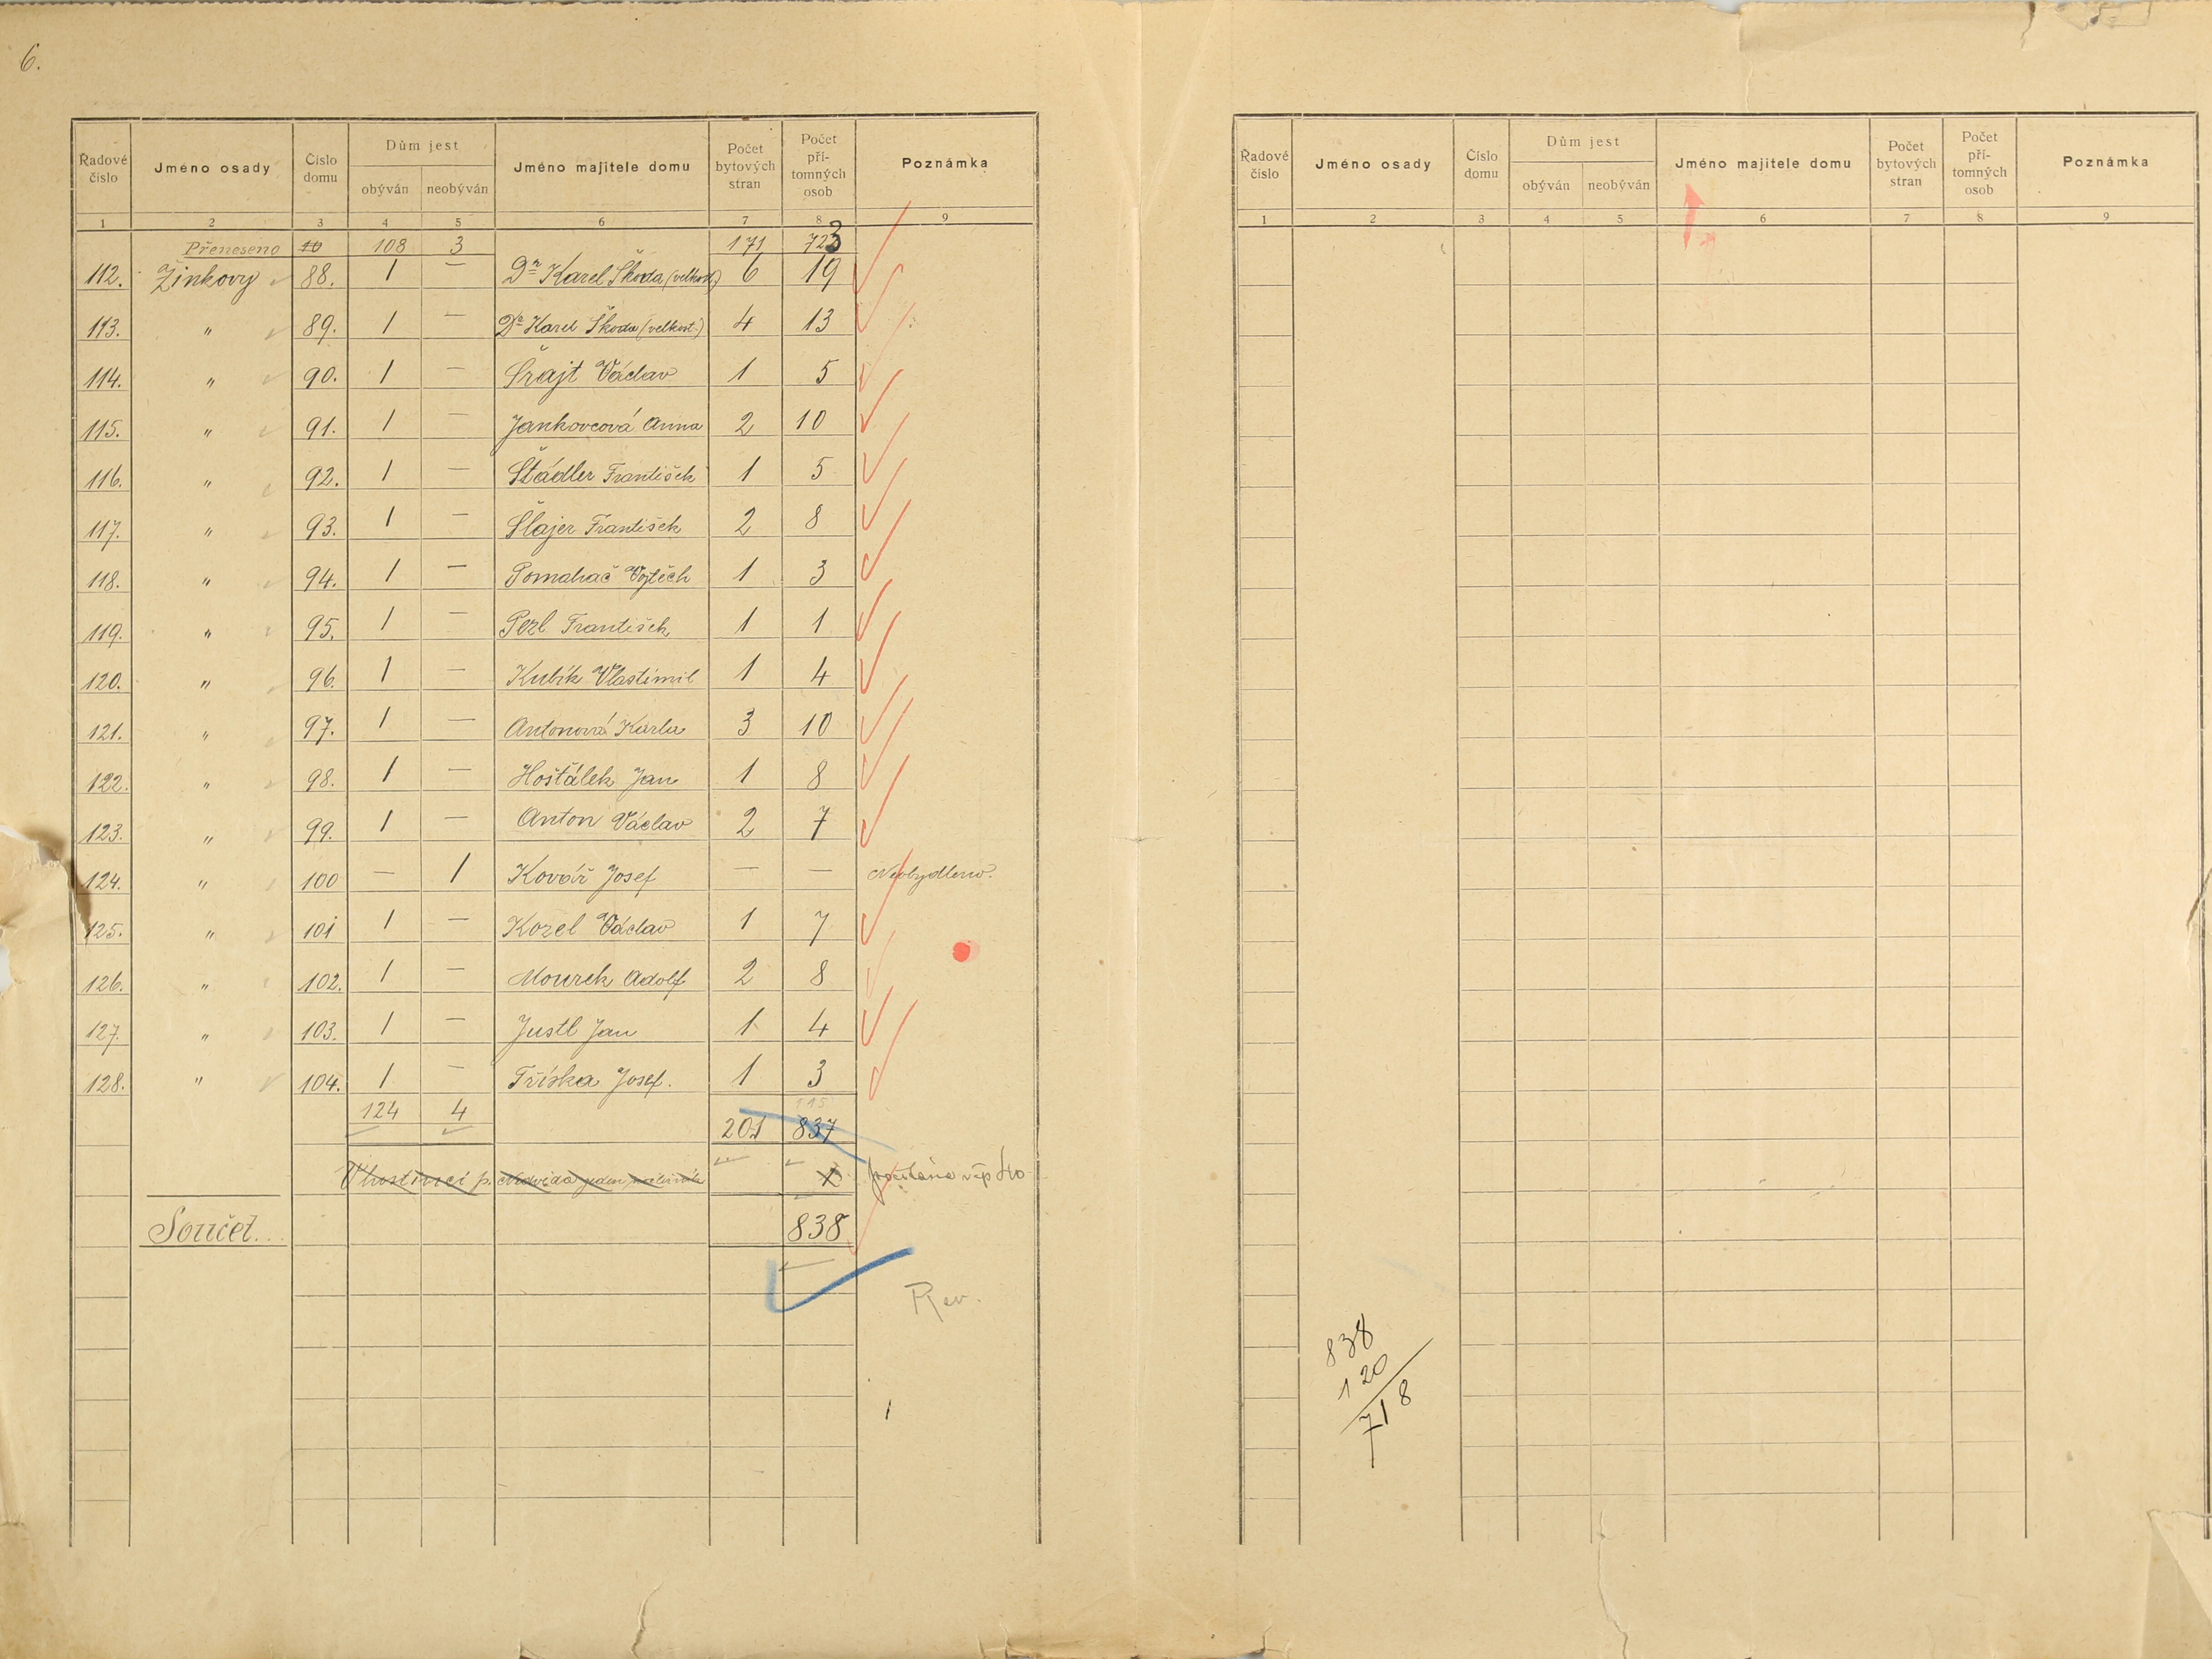 6.
Řadové číslo Jméno osady Číslo domu Dům jest obýván neobýván Jméno majitele domu Počet bytových stran Počet přítomných osob Poznámka
1 2 3 4 5 6 7 8 9
Přeneseno 108 3 171 723
112. Žinkovy 88. 1 — Dr Karel Škoda (velkost.) 6 19
113. " 89. 1 — Dr Karel Škoda (velkost.) 4 13
114. " 90. 1 — Šrajt Václav 1 5
115. " 91. 1 — Jankovcová Anna 2 10
116. " 92. 1 — Štádler František 1 5
117. " 93. 1 — Šlajer František 2 8
118. " 94. 1 — Pomahač Vojtěch 1 3
119. " 95. 1 — Perl František 1 1
120. " 96. 1 — Kubík Vlastimil 1 4
121. " 97. 1 — Antonová Karla 3 10
122. " 98. 1 — Hošťálek Jan 1 8
123. " 99. 1 — Anton Václav 2 7
124. " 100 — 1 Kovář Josef — — Neobydleno.
125. " 101 1 — Kozel Václav 1 7
126. " 102. 1 — Mourek Adolf 2 8
127. " 103. 1 — Justl Jan 1 4
128. " 104. 1 — Tříska Josef. 1 3
124 4
115
201 837
V hostinci p.
Součet... 838
Rev.
Řadové číslo Jméno osady Číslo domu Dům jest obýván neobýván Jméno majitele domu Počet bytových stran Počet přítomných osob Poznámka
1 2 3 4 5 6 7 8 9
838
120
718